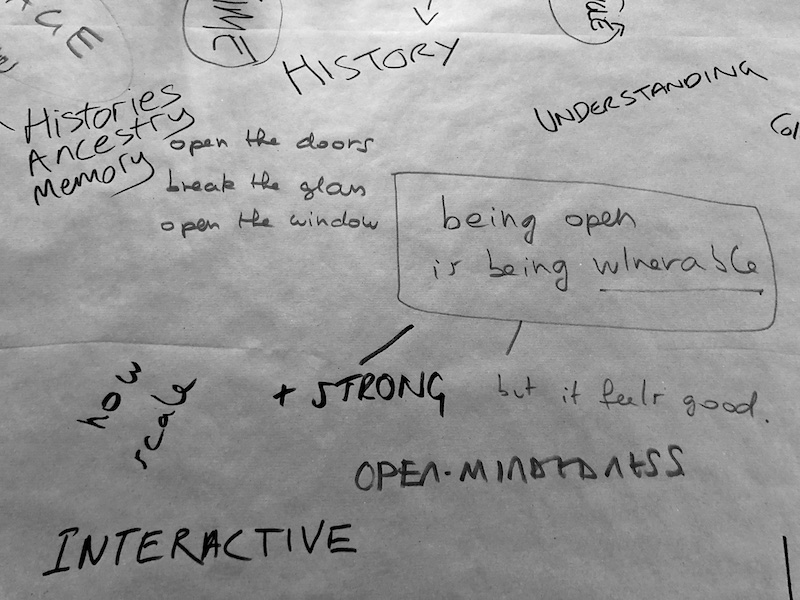 HISTORY
UNDERSTANDING
Histories
Ancestry
Memory
open the doors
break the glass
open the window
being open
is being vulnerable
how
scale
+ STRONG
but it feels good.
OPEN-MINDEDNESS
INTERACTIVE